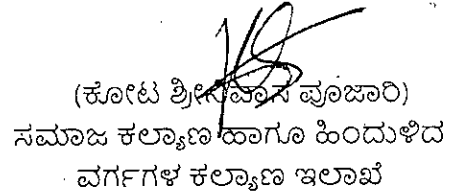 (ಕೋಟ ಶ್ರೀನಿವಾಸ ಪೂಜಾರಿ)
ಸಮಾಜ ಕಲ್ಯಾಣ ಹಾಗೂ ಹಿಂದುಳಿದ
ವರ್ಗಗಳ ಕಲ್ಯಾಣ ಇಲಾಖೆ